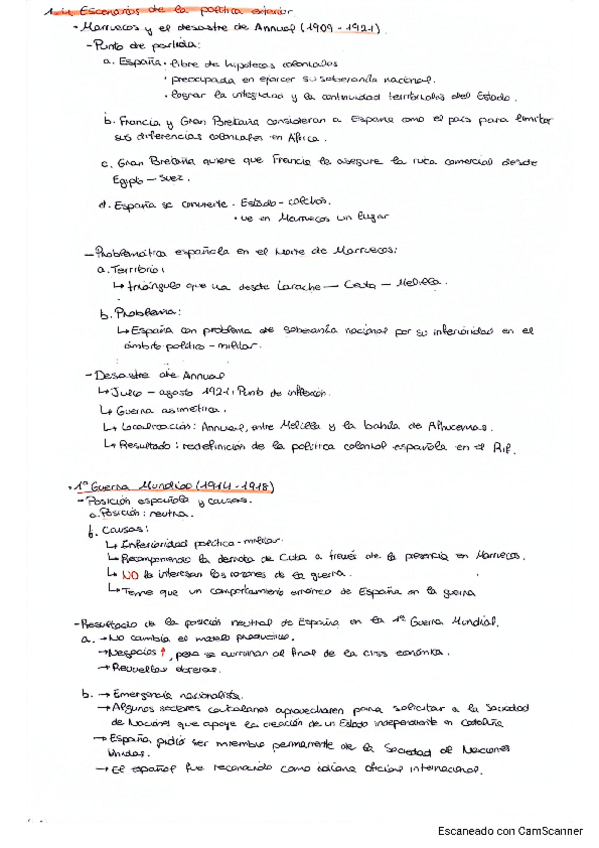 1.4. Escenarios de la política exterior
· Marruecos y el desastre de Annual (1909 - 1921)
- Punto de partida:
a. España · libre de hipotecas coloniales
· preocupada en ejercer su soberanía nacional.
· lograr la integridad y la continuidad territoriales del Estado.
b. Francia y Gran Bretaña consideran a España como el país para limitar
sus diferencias coloniales en África.
c. Gran Bretaña quiere que Francia le asegure la ruta comercial desde
Egipto - Suez.
d. España se convierte · Estado - colchón.
· ve en Marruecos un lugar
- Problemática española en el Norte de Marruecos:
a. Territorio:
↳ triángulo que va desde Larache - Ceuta - Melilla.
b. Problema:
↳ España con problema de soberanía nacional por su inferioridad en el
ámbito político - militar.
- Desastre de Annual
↳ Julio - agosto 1921: Punto de inflexión.
↳ Guerra asimétrica.
↳ Localización: Annual, entre Melilla y la bahía de Alhucemas.
↳ Resultado: redefinición de la política colonial española en el Rif.
· 1ª Guerra Mundial (1914 - 1918)
- Posición española y causas.
a. Posición: neutra.
b. Causas:
↳ Inferioridad política - militar.
↳ Recomponiendo la derrota de Cuba a través de la presencia en Marruecos.
↳ NO le interesan las razones de la guerra.
↳ Teme que un comportamiento erróneo de España en la guerra
- Resultado de la posición neutral de España en la 1ª Guerra Mundial.
a. → No cambia el modelo productivo.
→ Negocios ↑, pero se arruinan al final de la crisis económica.
→ Revueltas obreras.
b. → Emergencia nacionalista.
→ Algunos sectores catalanes aprovecharon para solicitar a la Sociedad
de Naciones que apoye la creación de un Estado independiente en Cataluña
→ España, pidió ser miembro permanente de la Sociedad de Naciones
Unidas.
→ El español fue reconocido como idioma oficial internacional.
Escaneado con CamScanner